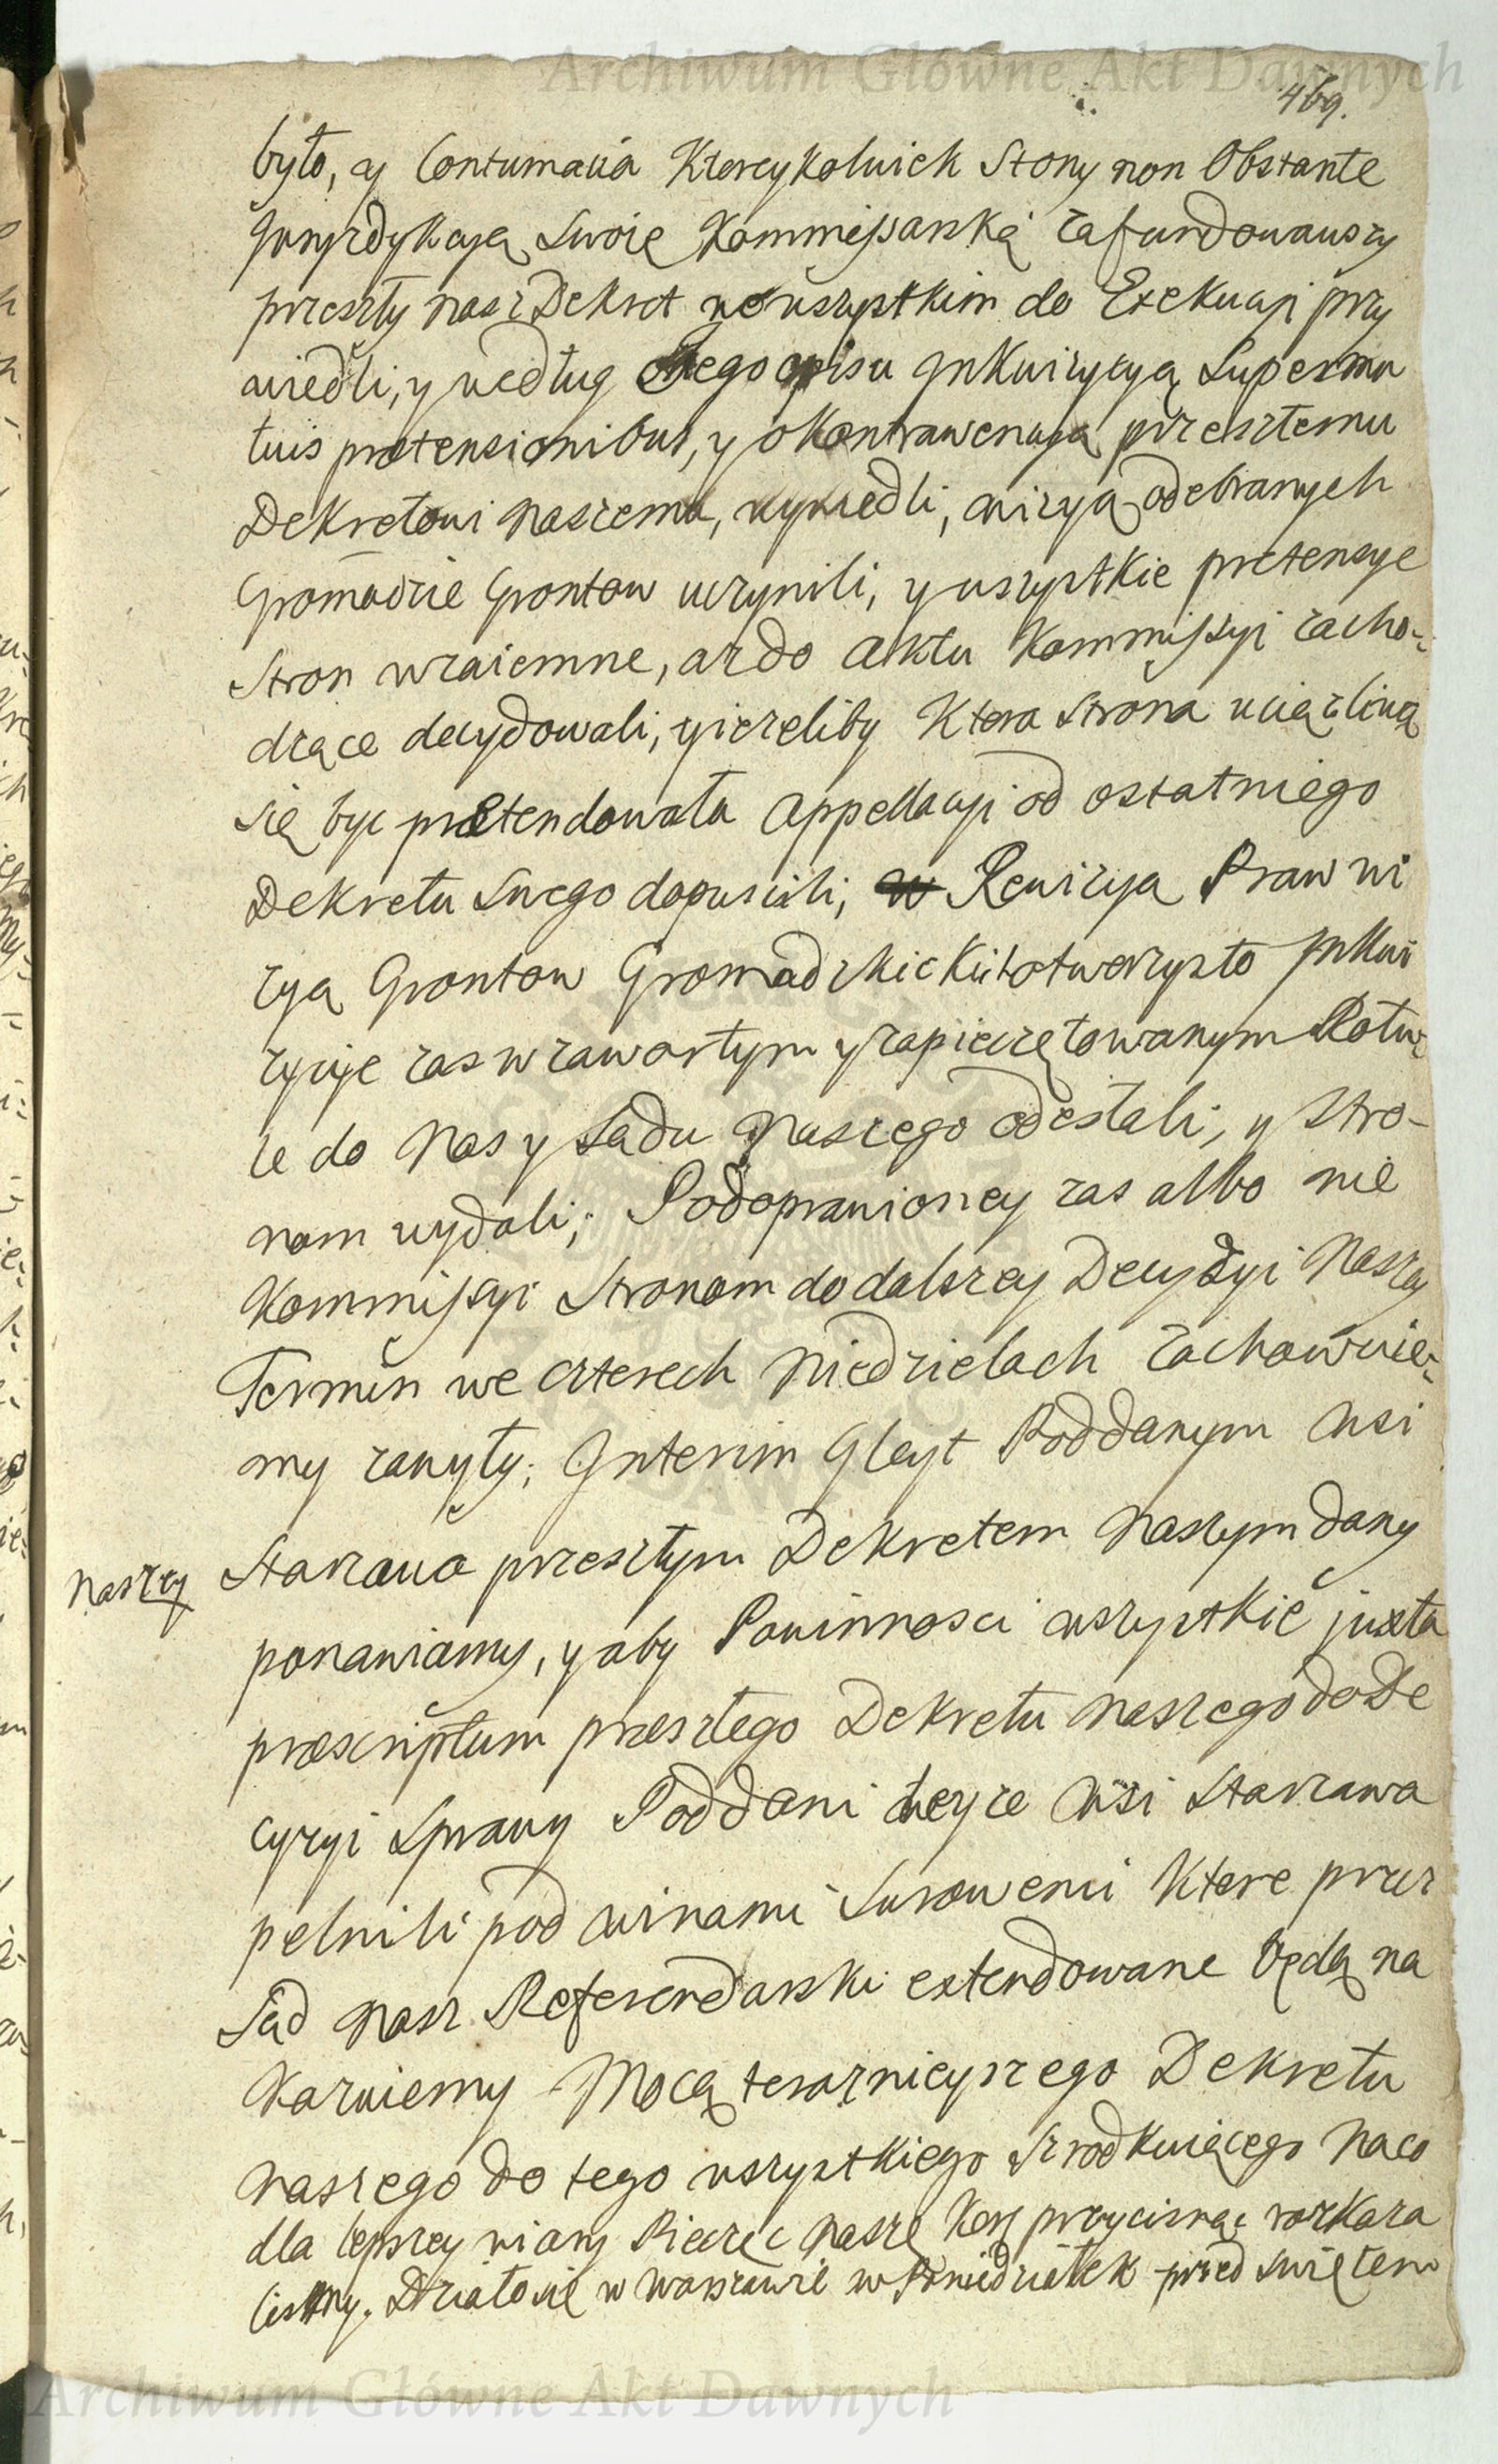 Archiwum Główne Akt Dawnych
469.
było, cy Contumacia Ktoreykolwiek Strony non Obstante
Jurysdykcyą Swoię Kommissarską zafundowawszy
przeszły nasz Dekret we wszystkim do Exekucyi przy
wiedli, y według onego opisu Jnkwizycyą Super mu
tuis prætensionibus, y o Kontrawencyą przeszłemu
Dekretowi naszemu, wywiedli, wizyą odebranych
Gromadzie Grontow uczynili, y wszystkie pretensye
Stron wzaiemne, az do aktu Kommissyi zacho-
dzące decydowali, y iezeliby Ktora Strona uciązliwą
się byc prætendowała appellacyi od ostatniego
Dekretu Swego dopuscili, Rewizya Praw wi
zyą Grontow Gromadzkich otworzysto Jnkwi
zycye zas w zawartym y zapieczętowanym Rotu
le do nas y Sądu Naszego odesłali, y Stro-
nom wydali; Podoprawioney zas albo nie
Kommissyi Stronom do dalszey Decyzyi Naszey
Termin we czterech Niedzielach zachowuie-
my zawyty; Jnterim Gleyt Poddanym wsi
naszey
Starzawa przeszłym Dekretem naszym dany
ponawiamy, y aby Powinnosci wszystkie juxta
præscriptum przeszłego Dekretu naszego do De
cyzyi Sprawy Poddani teyze wsi Starzawa
pelnili pod winami Surowemi Ktore przez
Sąd nasz Referendarski extendowane będą na
Kazuiemy Mocą teraznieyszego Dekretu
naszego do tego wszystkiego Srzodkuiącego Na co
dla lepszey wiary Pieczęc naszę Kor: przycisnąc rozkaza
lismy. Działo się w Warszawie w Poniedziałek przed Swiętem
Archiwum Główne Akt Dawnych